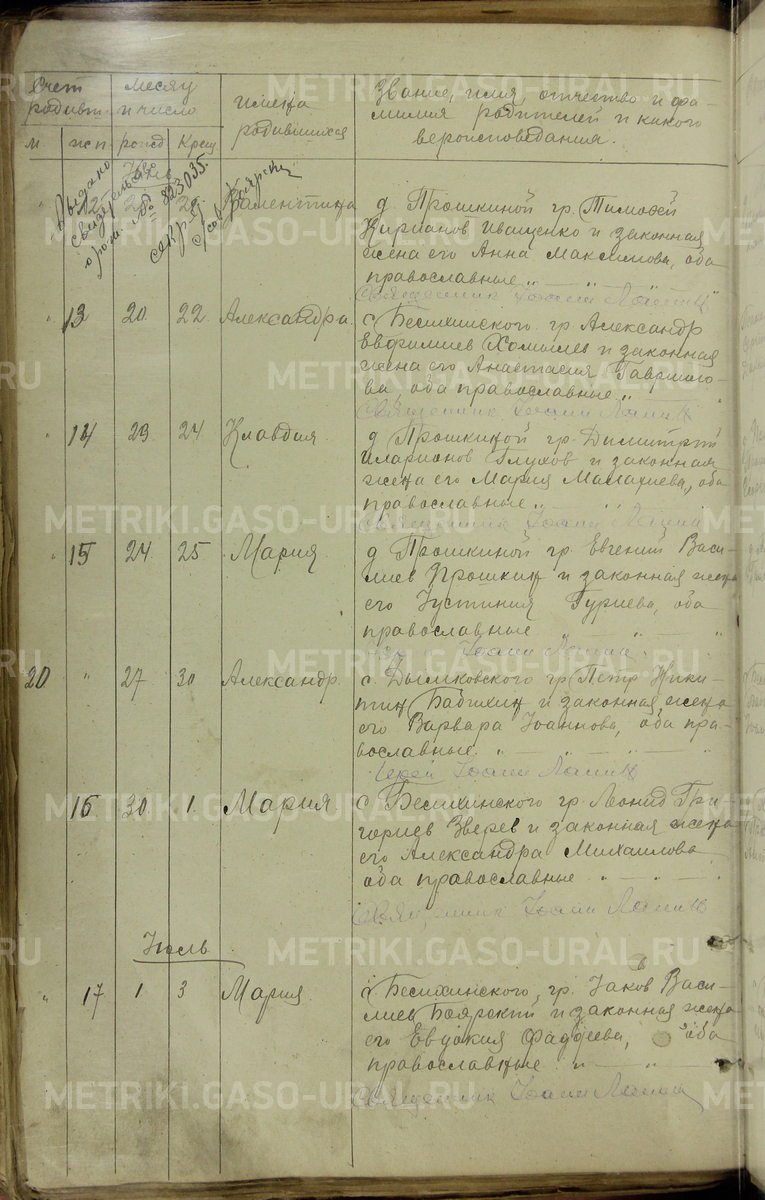 Счет родивш. | Месяц и число | имена родившихся | Звание, имя, отчество и фамилия родителей и какого вероисповедания.
м | жен | рожд | Крещ
Июнь
Выдано
свидетельство
о рожд. № 823035.
секр.
Боярских
12 | 22 | Валентина | д. Прошкиной гр. Тимофей
Кирианов Иващенко и законная
жена его Анна Максимова, оба
православные
Священник Иоанн Лапин
" 13 | 20 | 22 | Александра. | с. Бесихинского гр. Александр
Евфимиев Хомылев и законная
жена его Анастасия Гаврило-
ва оба православные
Священник Иоанн Лапин
" 14 | 23 | 24 | Клавдия. | д. Прошкиной гр. Димитрий
Иларионов Глухов и законная
жена его Мария Малахиева, оба
православные
Священник Иоанн Лапин
" 15 | 24 | 25 | Мария | д. Прошкиной гр. Евгений Васи-
лиев Прошкин и законная жена
его Иустиния Гуриева, оба
православные
Иоанн Лапин
20 | " | 27 | 30 | Александр. | с. Дымковского гр. Петр Ники-
тин Бабихин и законная жена
его Варвара Иоаннова, оба пра-
вославные.
Иерей Иоанн Лапин
16 | 30 | 1. | Мария | с. Бесихинского гр. Леонид Гри-
гориев Зверев и законная жена
его Александра Михаилова
оба православные
Священник Иоанн Лапин
Июль
" 17 | 1 | 3 | Мария | с. Бесихинского, гр. Иаков Васи-
лиев Боярский и законная жена
его Евдокия Фаддеева, оба
православные
Священник Иоанн Лапин
METRIKI.GASO-URAL.RU